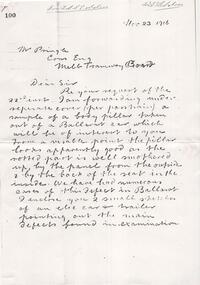 100
Nov 23 1916
Mr Pringle
Com Eng
Melb Tramway Board
Dear Sir
Re your request of the
22nd inst. I am forwarding under
separate cover per passing a
sample of a body pillar taken
out of a Ballarat car which
will be of interest to you
from a visible point the pillar
looks apparently good as the
rotted part is well smothered
up by the panel from the outside
& by the back of the seat in the
inside. We have had numerous
cases of this defect in Ballarat
I enclose you 2 small sketches
of an elec car & trailer
pointing out the main
defects found in examination